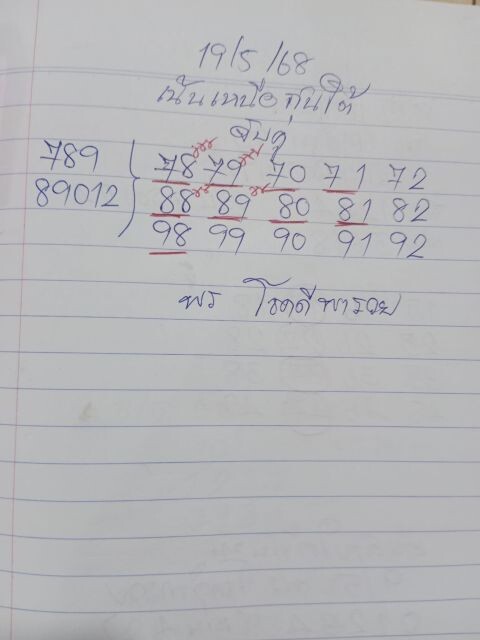 19/5/68
เน้นเหนือ ทุนใต้
จับคู่
789 78 79 70 71 72
89012 88 89 80 81 82
98 99 90 91 92
พร โชคดี พารวย